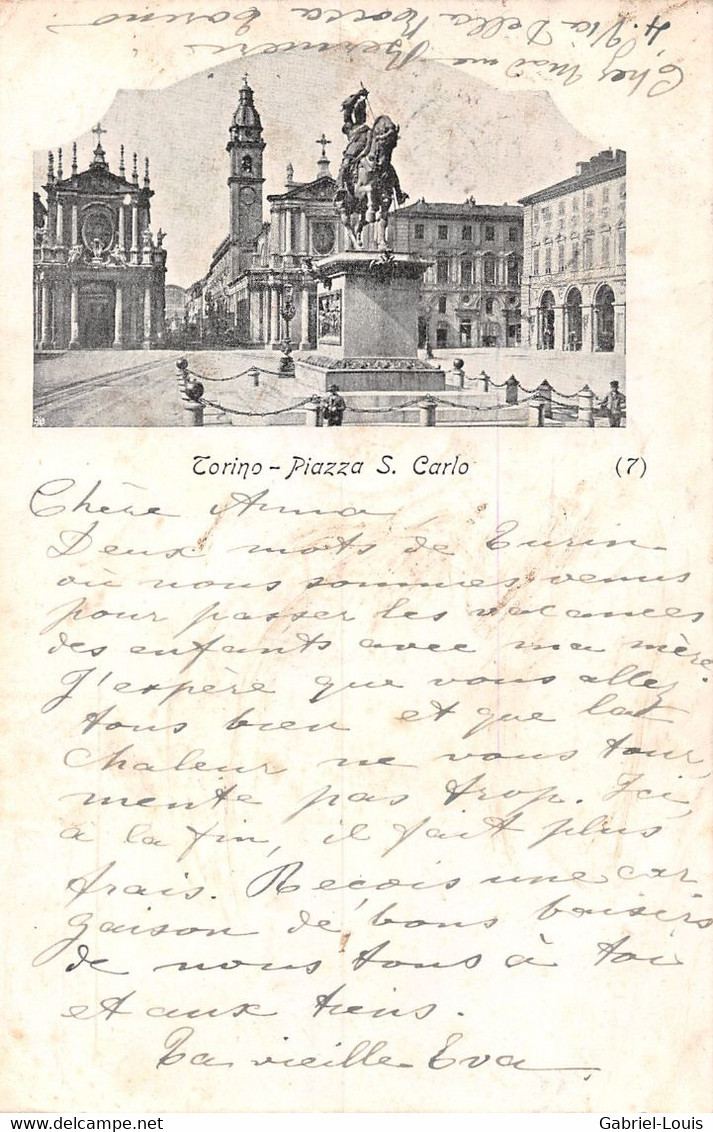 Chez Mad me Berneri
4. Via Della Rocca
Torino
Torino - Piazza S. Carlo (7)
Chère Anna,
Deux mots de Turin
où nous sommes venus
pour passer les vacances
des enfants avec ma mère.
J'espère que vous allez
tous bien et que la
chaleur ne vous tour
mente pas trop. Ici,
à la fin, il fait plus
frais. Reçois une car
gaison de bons baisers
de nous tous à toi
et aux tiens.
Ta vieille Eva
Gabriel-Louis